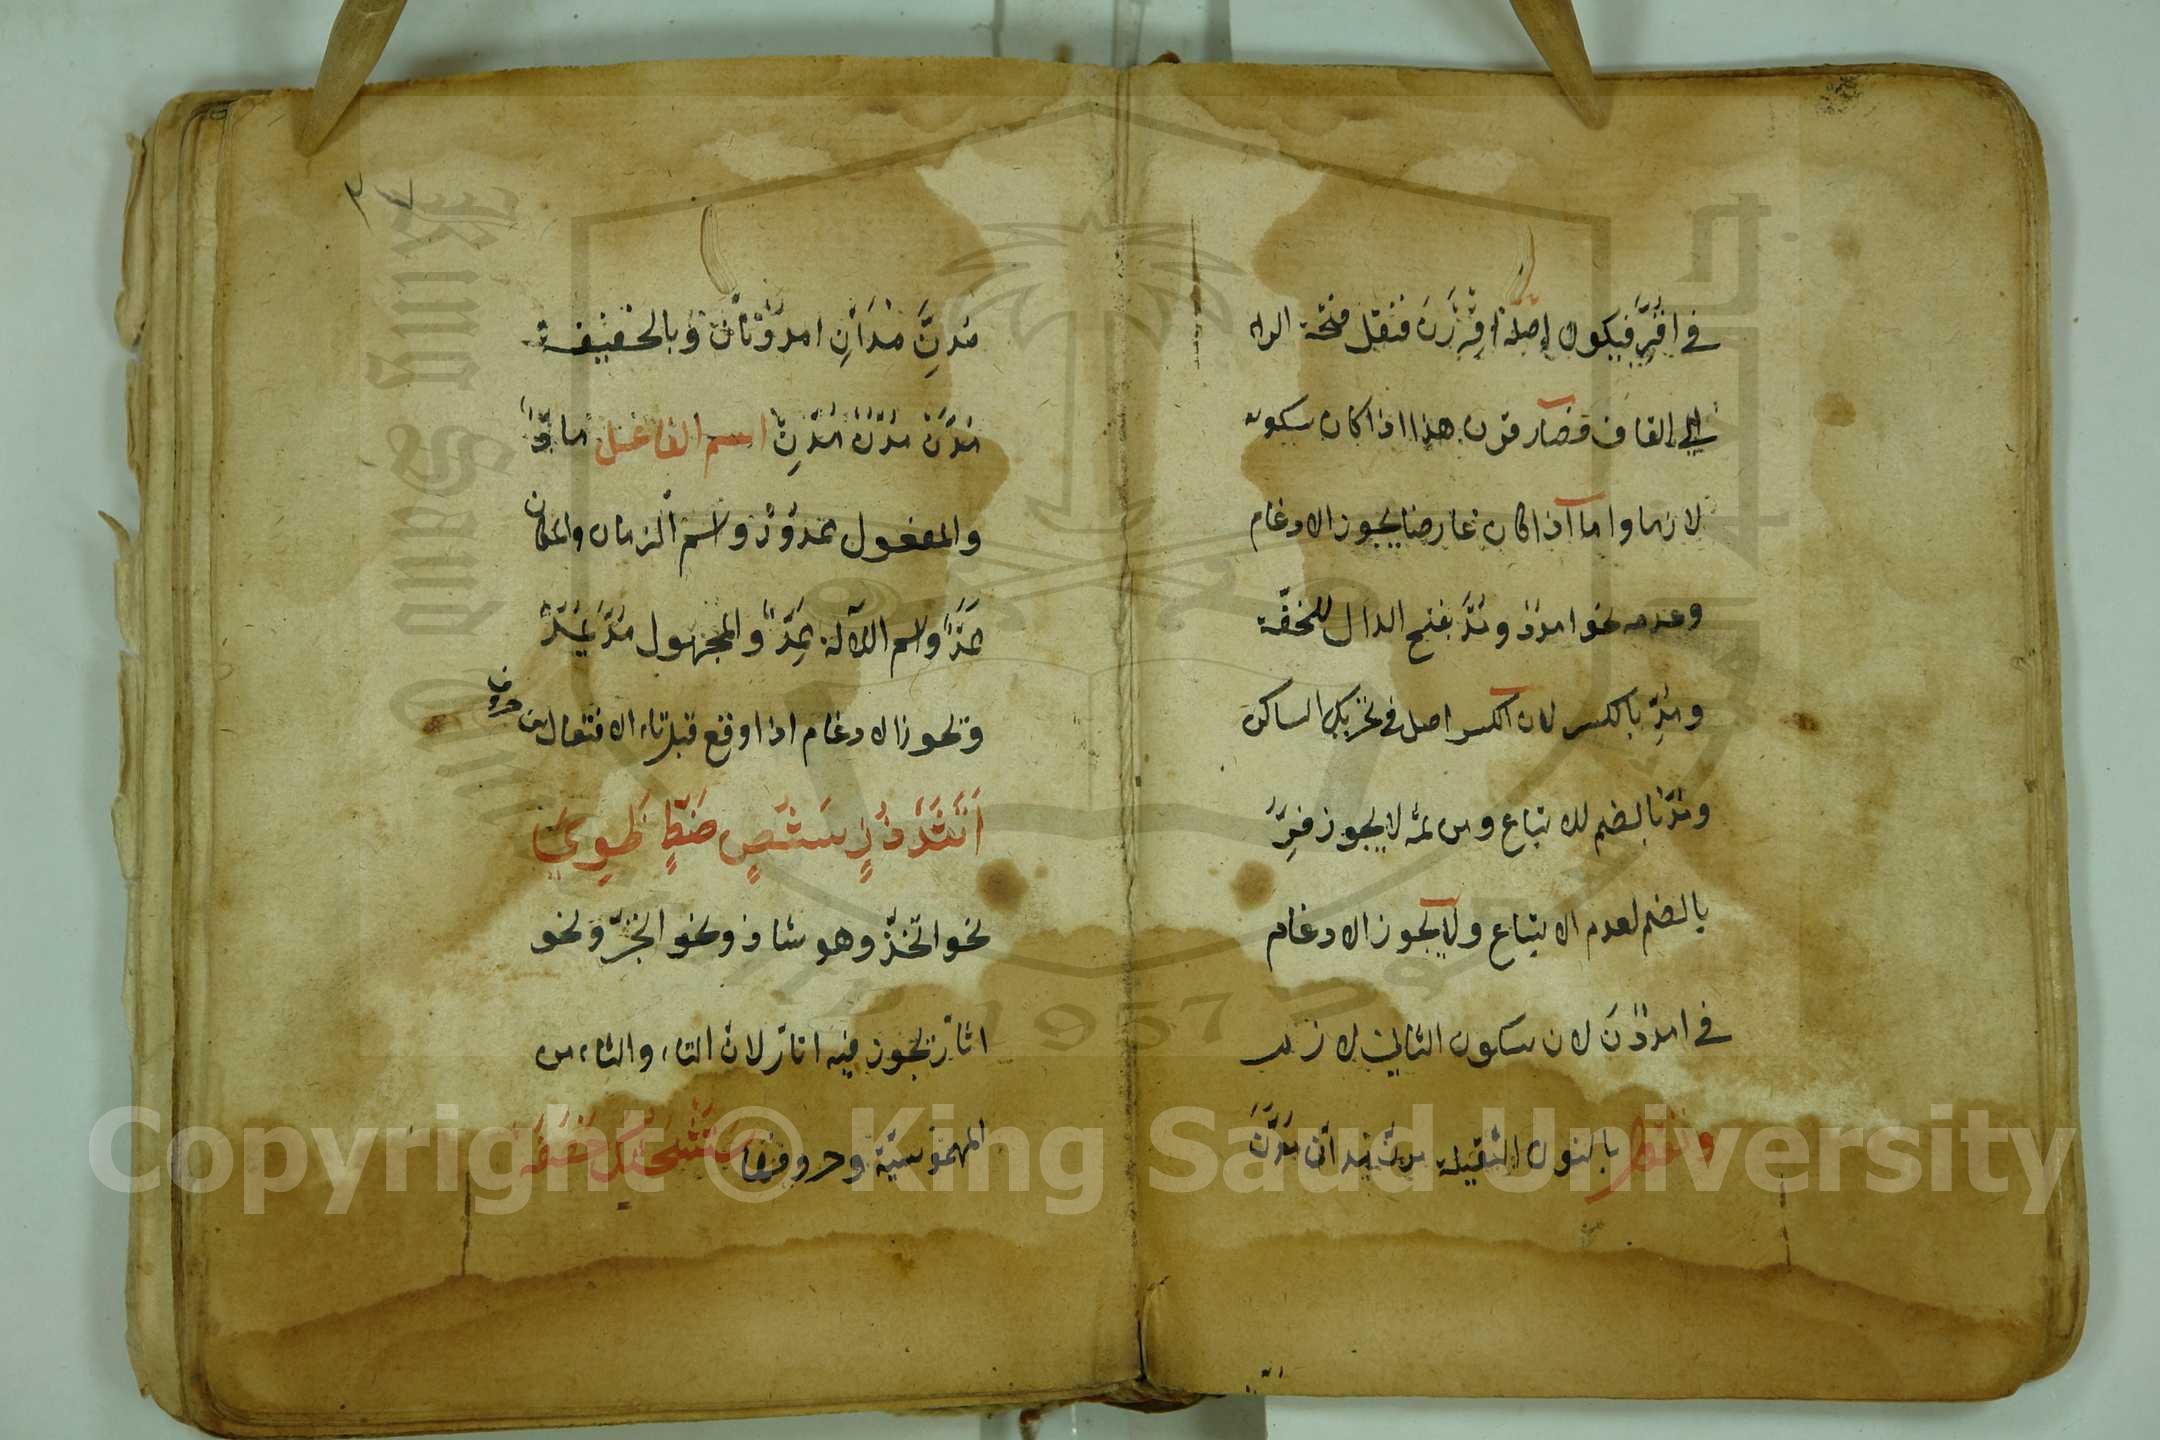 في اقْرَرْ فيكون اصله اقْرَرْنَ فنقل فتحة الراء
الي القاف فصار قرن هذا اذا كان سكونه
لازما واما اذا كان عارضا يجوز الادغام
وعدمه نحو امدد ومُدَّ بفتح الدال للخفّة
ومُدِّ بالكسر لان الكسر اصل في تحريك الساكن
ومُدُّ بالضم للاتباع ومن ثمه لا يجوز فِرُّ
بالضم لعدم الاتباع ولا يجوز الادغام
في امددْنَ لان سكون الثاني لازم
وتقول بالنون الثقيلة مدنّ مدانّ مُدُّنَّ
مُدِّنَّ مُدَّانِّ امدُدْنانِّ وبالخفيفة
مُدَّنْ مُدُّنْ مُدِّنْ اسم الفاعل مادٌّ
والمفعول ممدُوْدٌ واسم الزمان والمكان
مَمَدٌّ واسم الالة مِمَدٌّ والمجهول مُدَّ يُمَدُّ
ويجوز الادغام اذا وقع قبل تاء الافتعال من حروف
اَتَثَدَذُزٍ سَشَصٍ ضَطٍ ظَوِيَ
نحو اتخذ وهو شاذ ونحو اتجر ونحو
اثار يجوز فيه اتار لان التاء والثاء من
المهموسيّة وحروفها سَتَشْحَثُكَ خَصَفَهْ
King Saud University
1957
Copyright © King Saud University